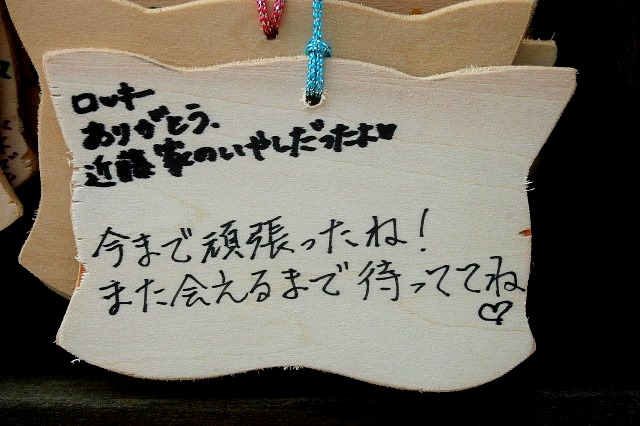 ロッキー
ありがとう、
近藤家のいやしだったよ♥
今まで頑張ったね！
また会えるまで待っててね
♡